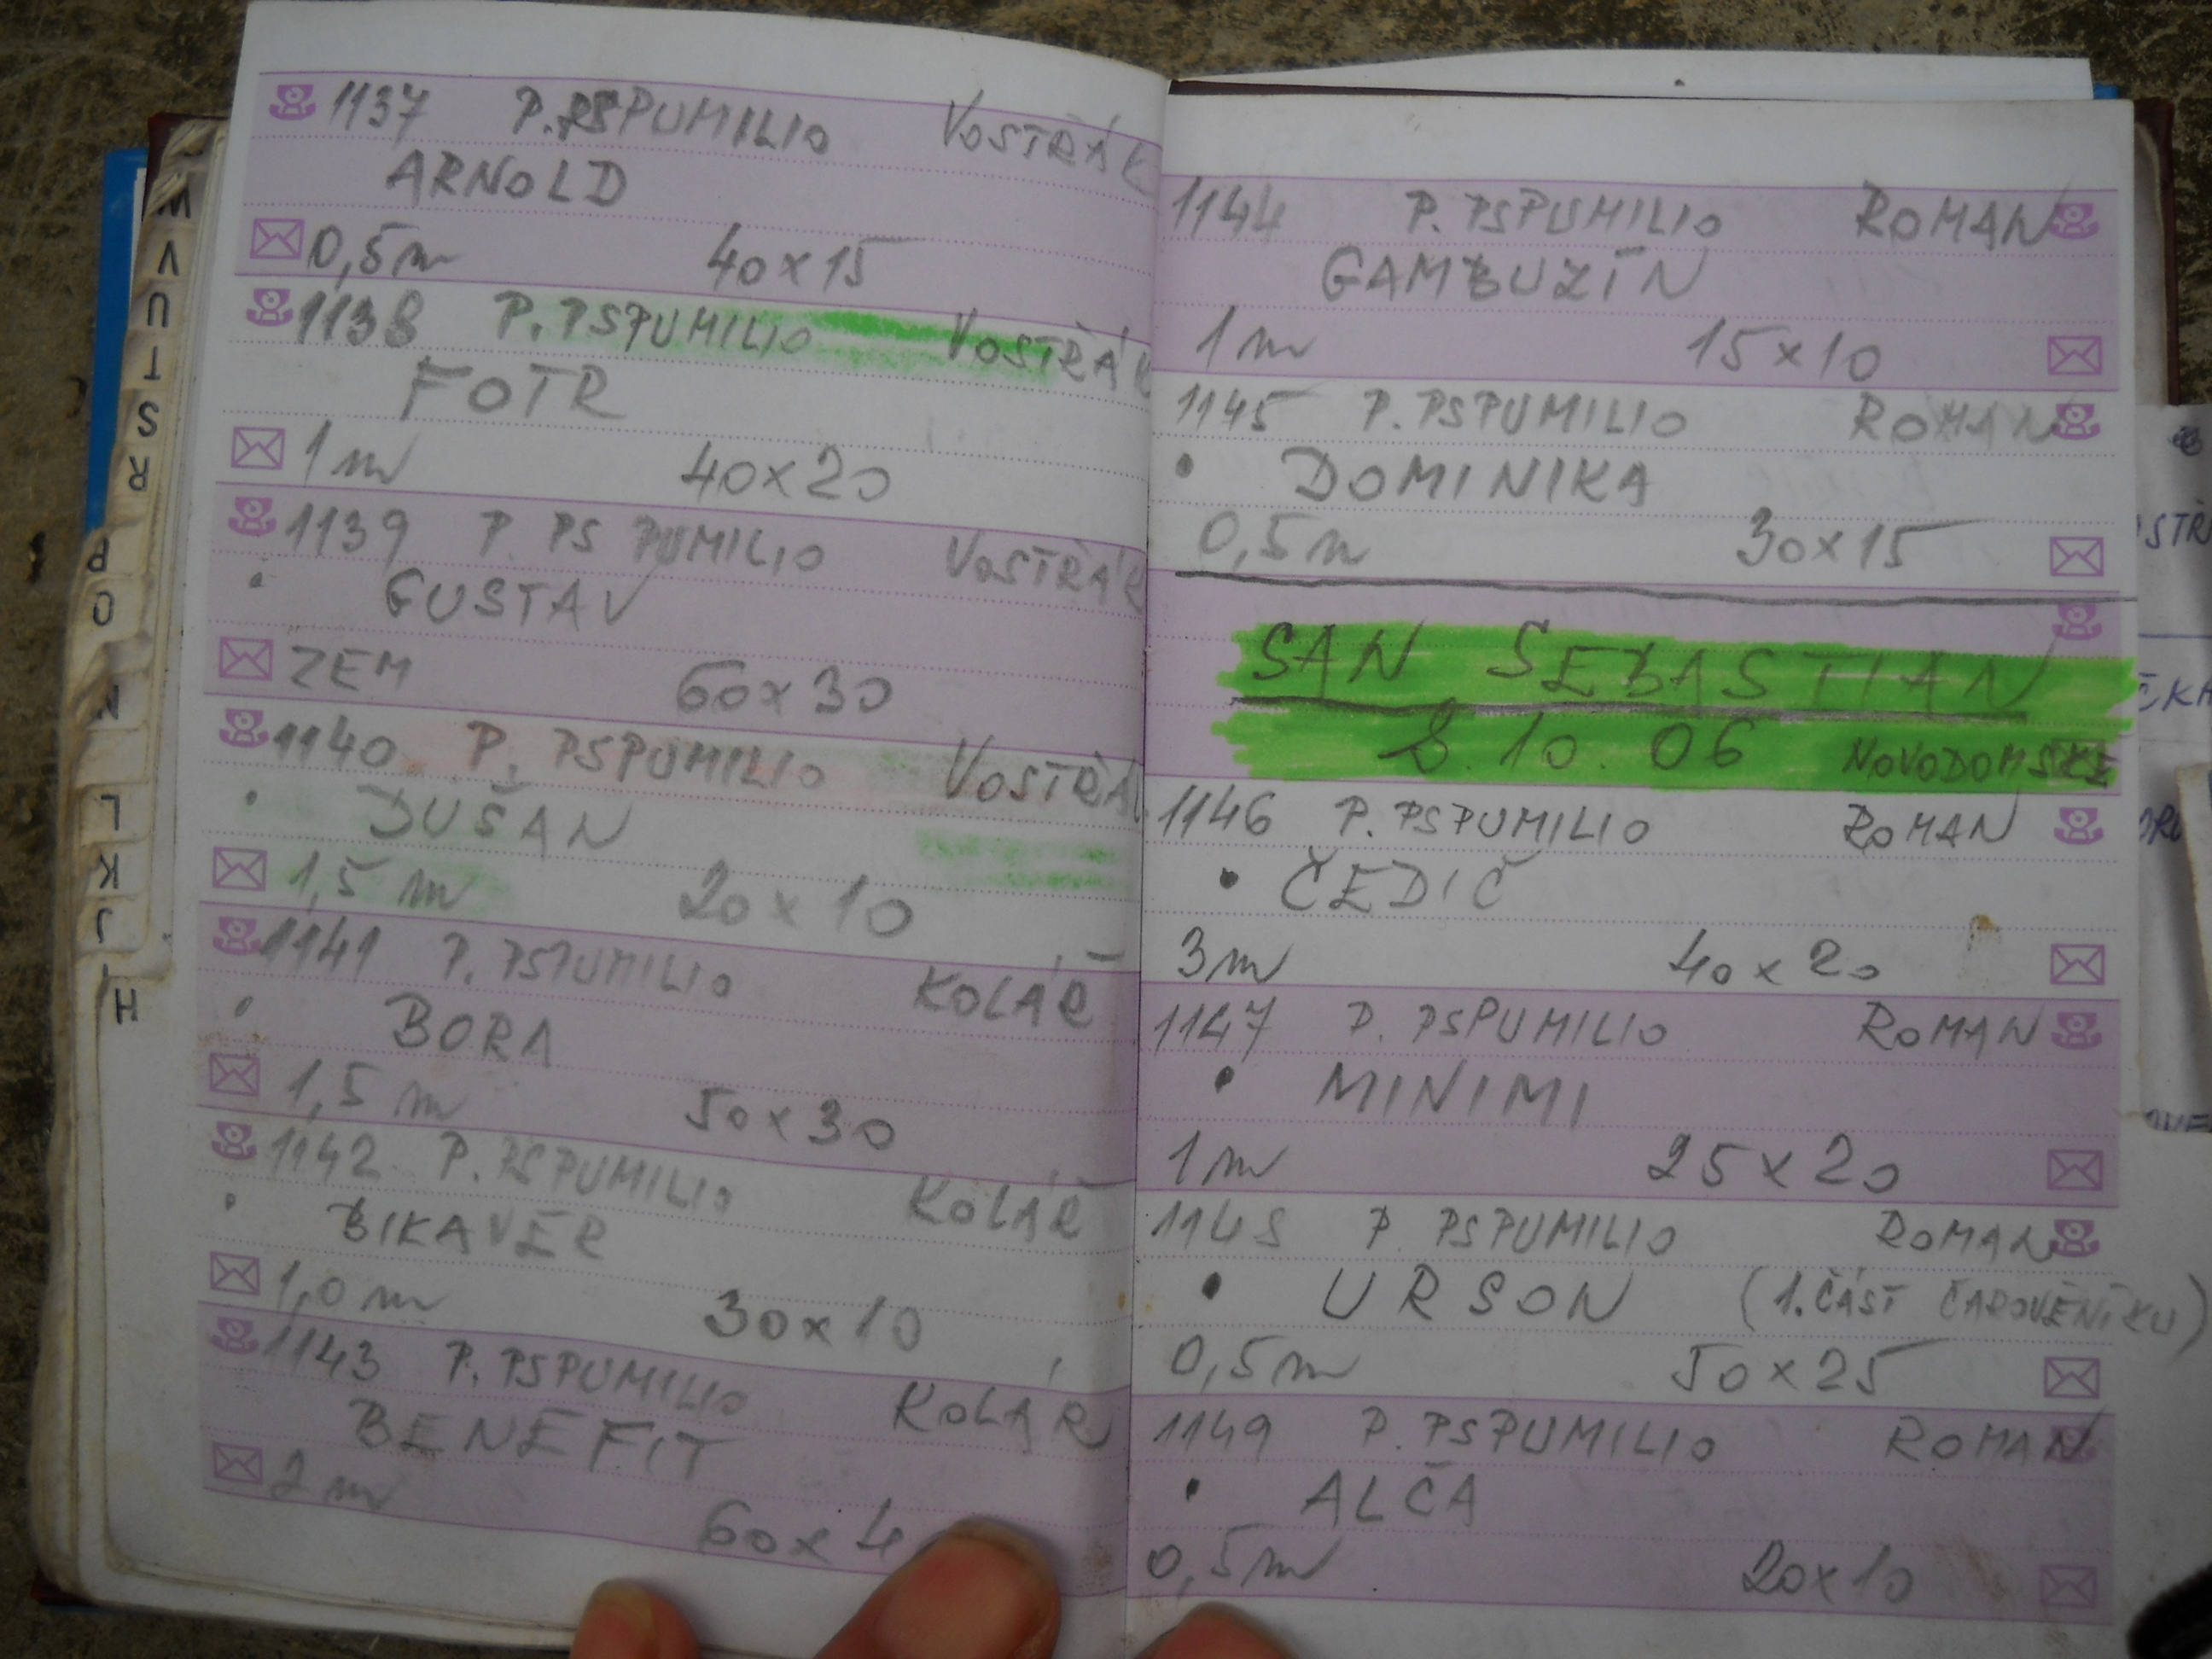 1137 P. PSPUMILIO VOSTŘÁK
ARNOLD
0,5m 40x15
1138 P. PSPUMILIO VOSTŘÁK
FOTR
1m 40x20
1139 P. PS PUMILIO VOSTŘÁK
• GUSTAV
ZEM 60x30
1140 P. PSPUMILIO VOSTŘÁK
• DUŠAN
1,5 m 20x10
1141 P. PSPUMILIO KOLÁŘ
• BORA
1,5 m 50x30
1142 P. PSPUMILIO KOLÁŘ
• BIKAVER
1,0 m 30x10
1143 P. PSPUMILIO KOLÁŘ
BENEFIT
2m 60x4
1144 P. PSPUMILIO ROMAN
GAMBUZÍN
1m 15x10
1145 P. PSPUMILIO ROMAN
• DOMINIKA
0,5m 30x15
SAN SEBASTIAN
8.10.06 NOVODOMSKÉ
1146 P. PSPUMILIO ROMAN
• ČEDIČ
3m 40x20
1147 P. PSPUMILIO ROMAN
• MINIMI
1m 25x20
1148 P PSPUMILIO ROMAN
• URSON (1. ČÁST ČAROVĚNÍKU)
0,5m 50x25
1149 P. PSPUMILIO ROMAN
• ALČA
0,5m 20x10
W
V
U
T
S
R
P
O
N
L
K
J
H